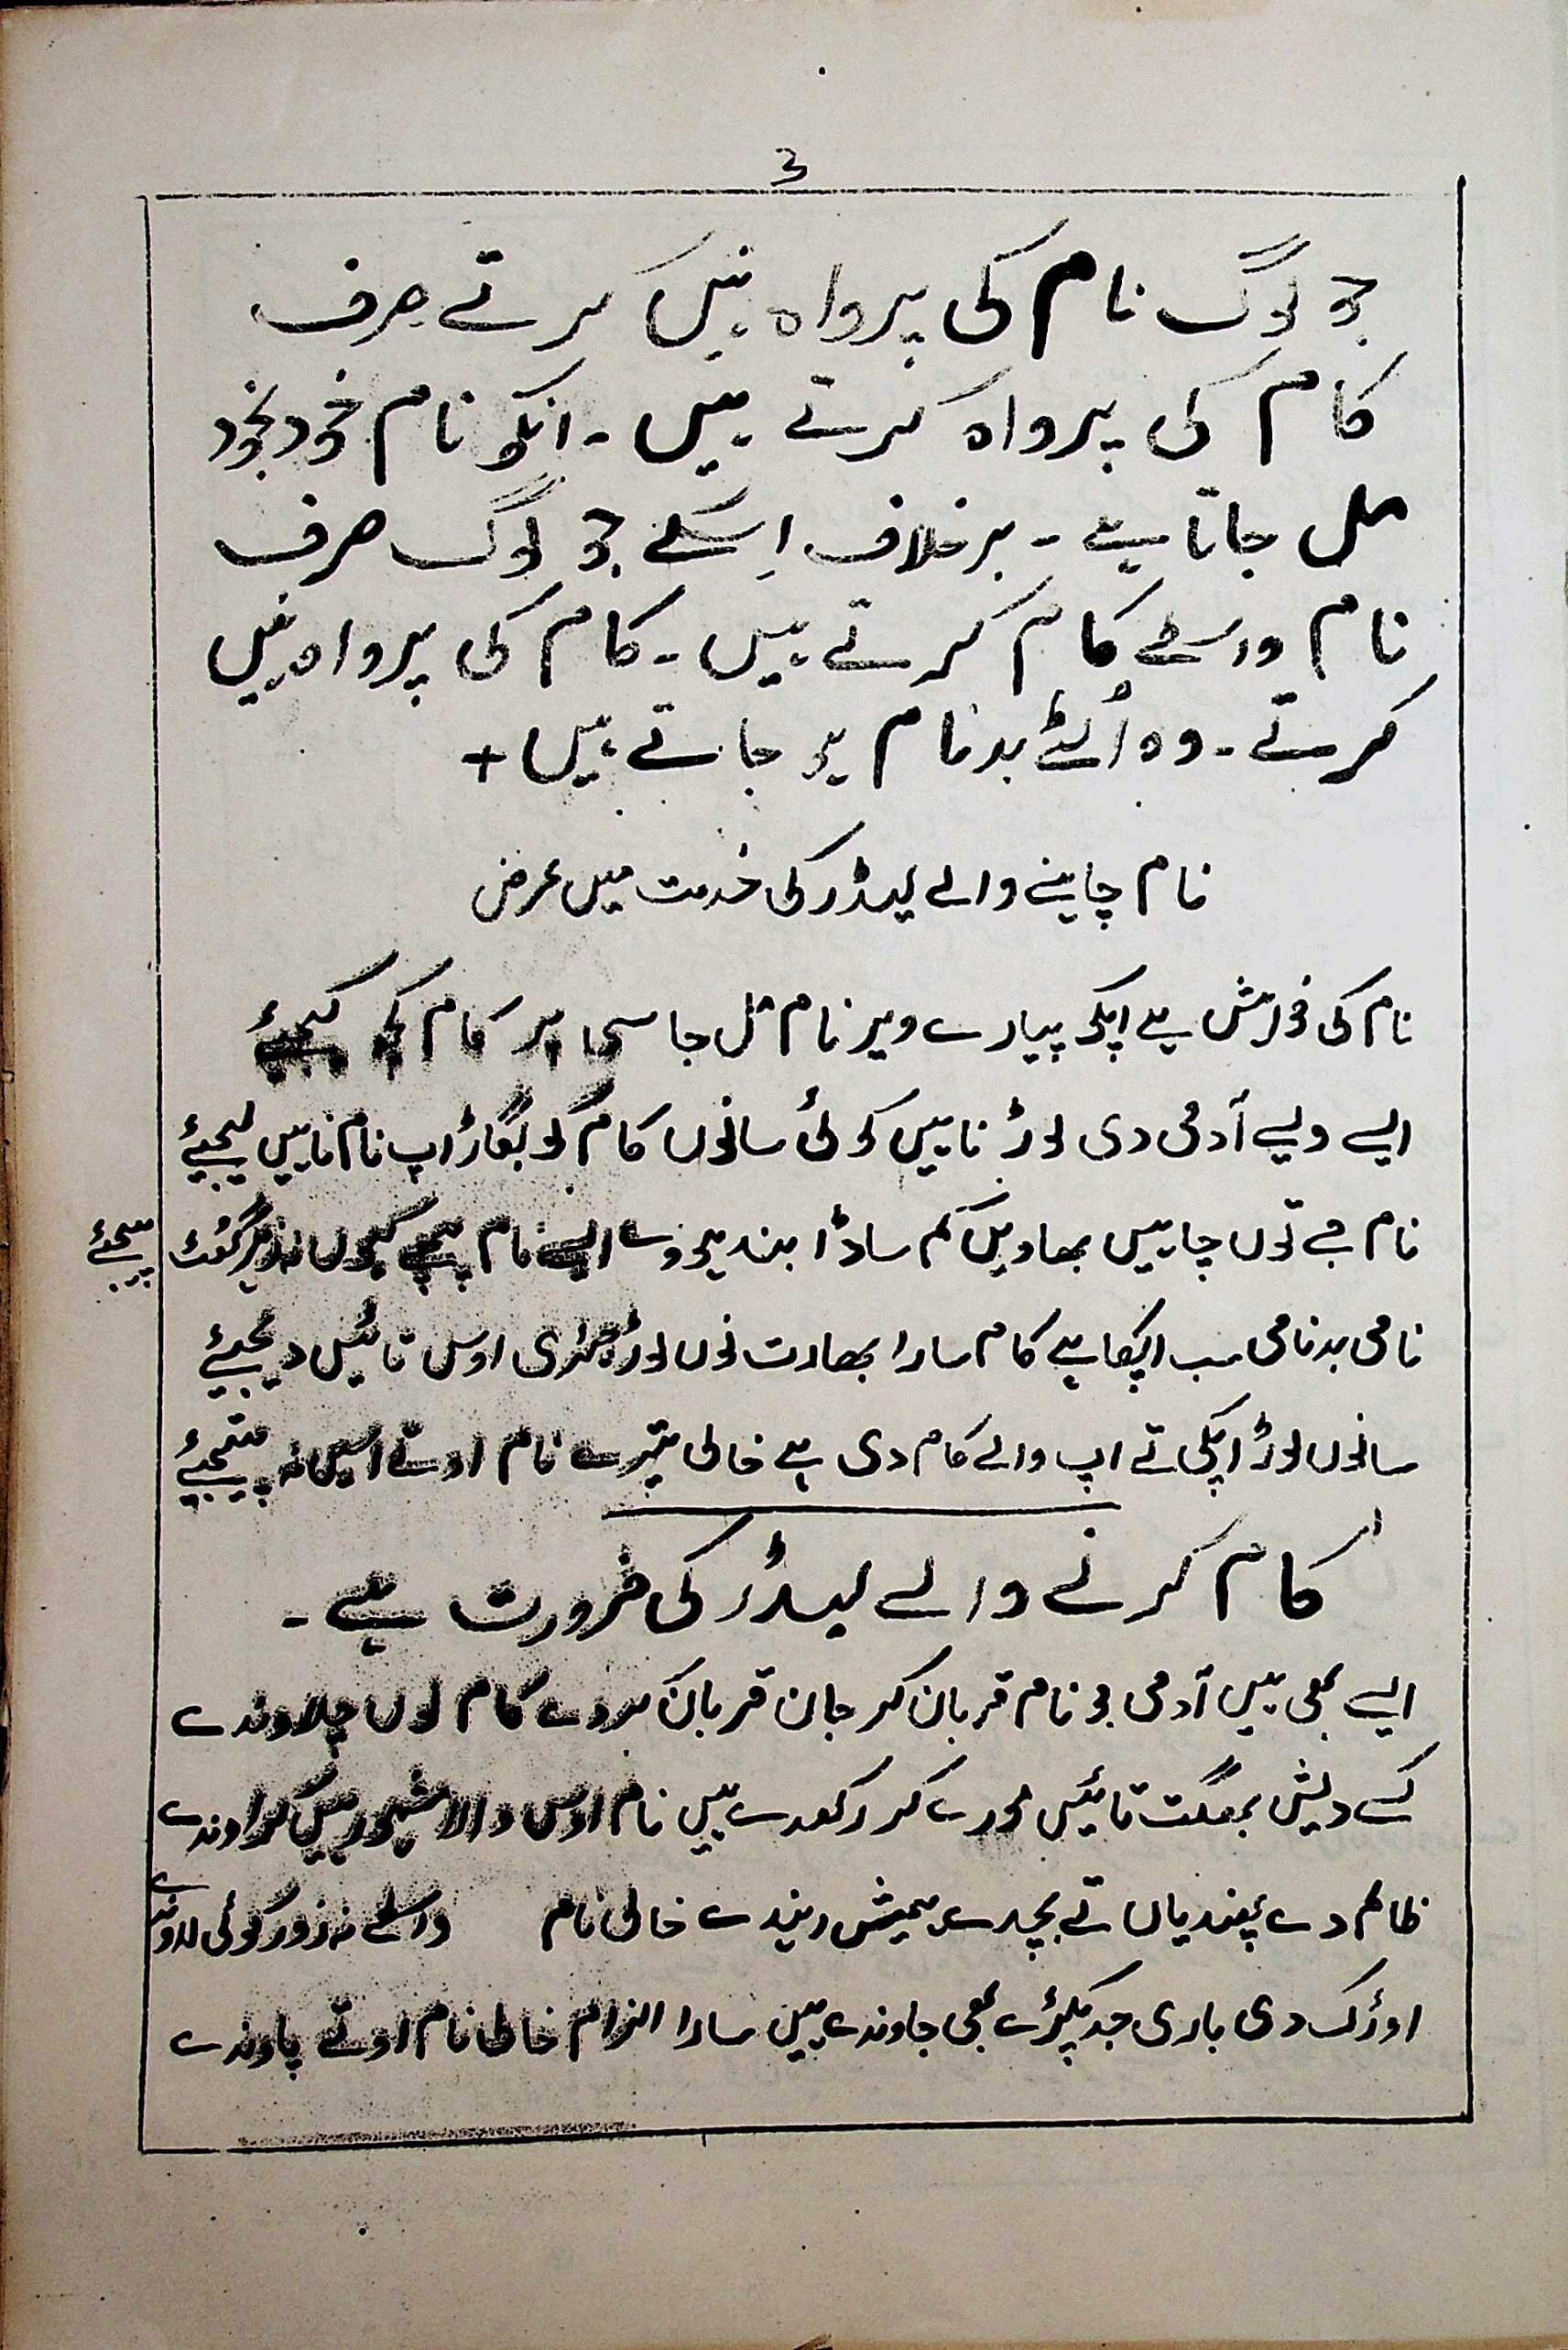 3
جو لوگ نام کی پرواہ نہیں کرتے صرف
کام کی پرواہ کرتے ہیں ۔ انکو نام خود بخود
مل جاتا ہے ۔ برخلاف اِسکے جو لوگ صرف
نام واسطے کام کرتے ہیں ۔ کام کی پرواہ نہیں
کرتے ۔ وہ اُلٹے بدنام ہو جاتے ہیں +
نام چاہنے والے لیڈر کی خدمت میں عرض
نام کی خواہش ہے اپکو پیارے ویر نام مل جا سی پر کام کچھ کیجیئے
ایسے ویسے آدمی دی لوڑ ناہیں کوئی سانوں کام کو بگاڑ اپ نام ناہیں لیجیئے
نام جے توں چاہیں بھاویں کم ساڈا بند ہووے ایسے نام پیچھے کیوں نہ
نامی بدنامی سب اپکا ہے کام سارا بھارت نوں لوڑ جہڑی اوس تائیں دیجیئے
سانوں لوڑ اپکی تے اپ والے کام دی ہے خالی تیرے نام اوتے اسیں نہ پتیجیئے
کام کرنے والے لیڈر کی ضرورت ہے ۔
ایسے بھی ہیں آدمی جو نام قربان کر جان قربان کردے کام نوں چلاوندے
کسے دیش بھگت تائیں مورے کر رکھدے ہیں نام اوس والا مشہور ہیں کراوندے
ظالم دے پھندیاں تے بچدے ہمیش رہندے خالی نام واسطے نہ زور کوئی لاوندے
اوڑک دی باری جد پکڑے بھی جاوندے ہیں سارا الزام خالی نام اوتے پاوندے